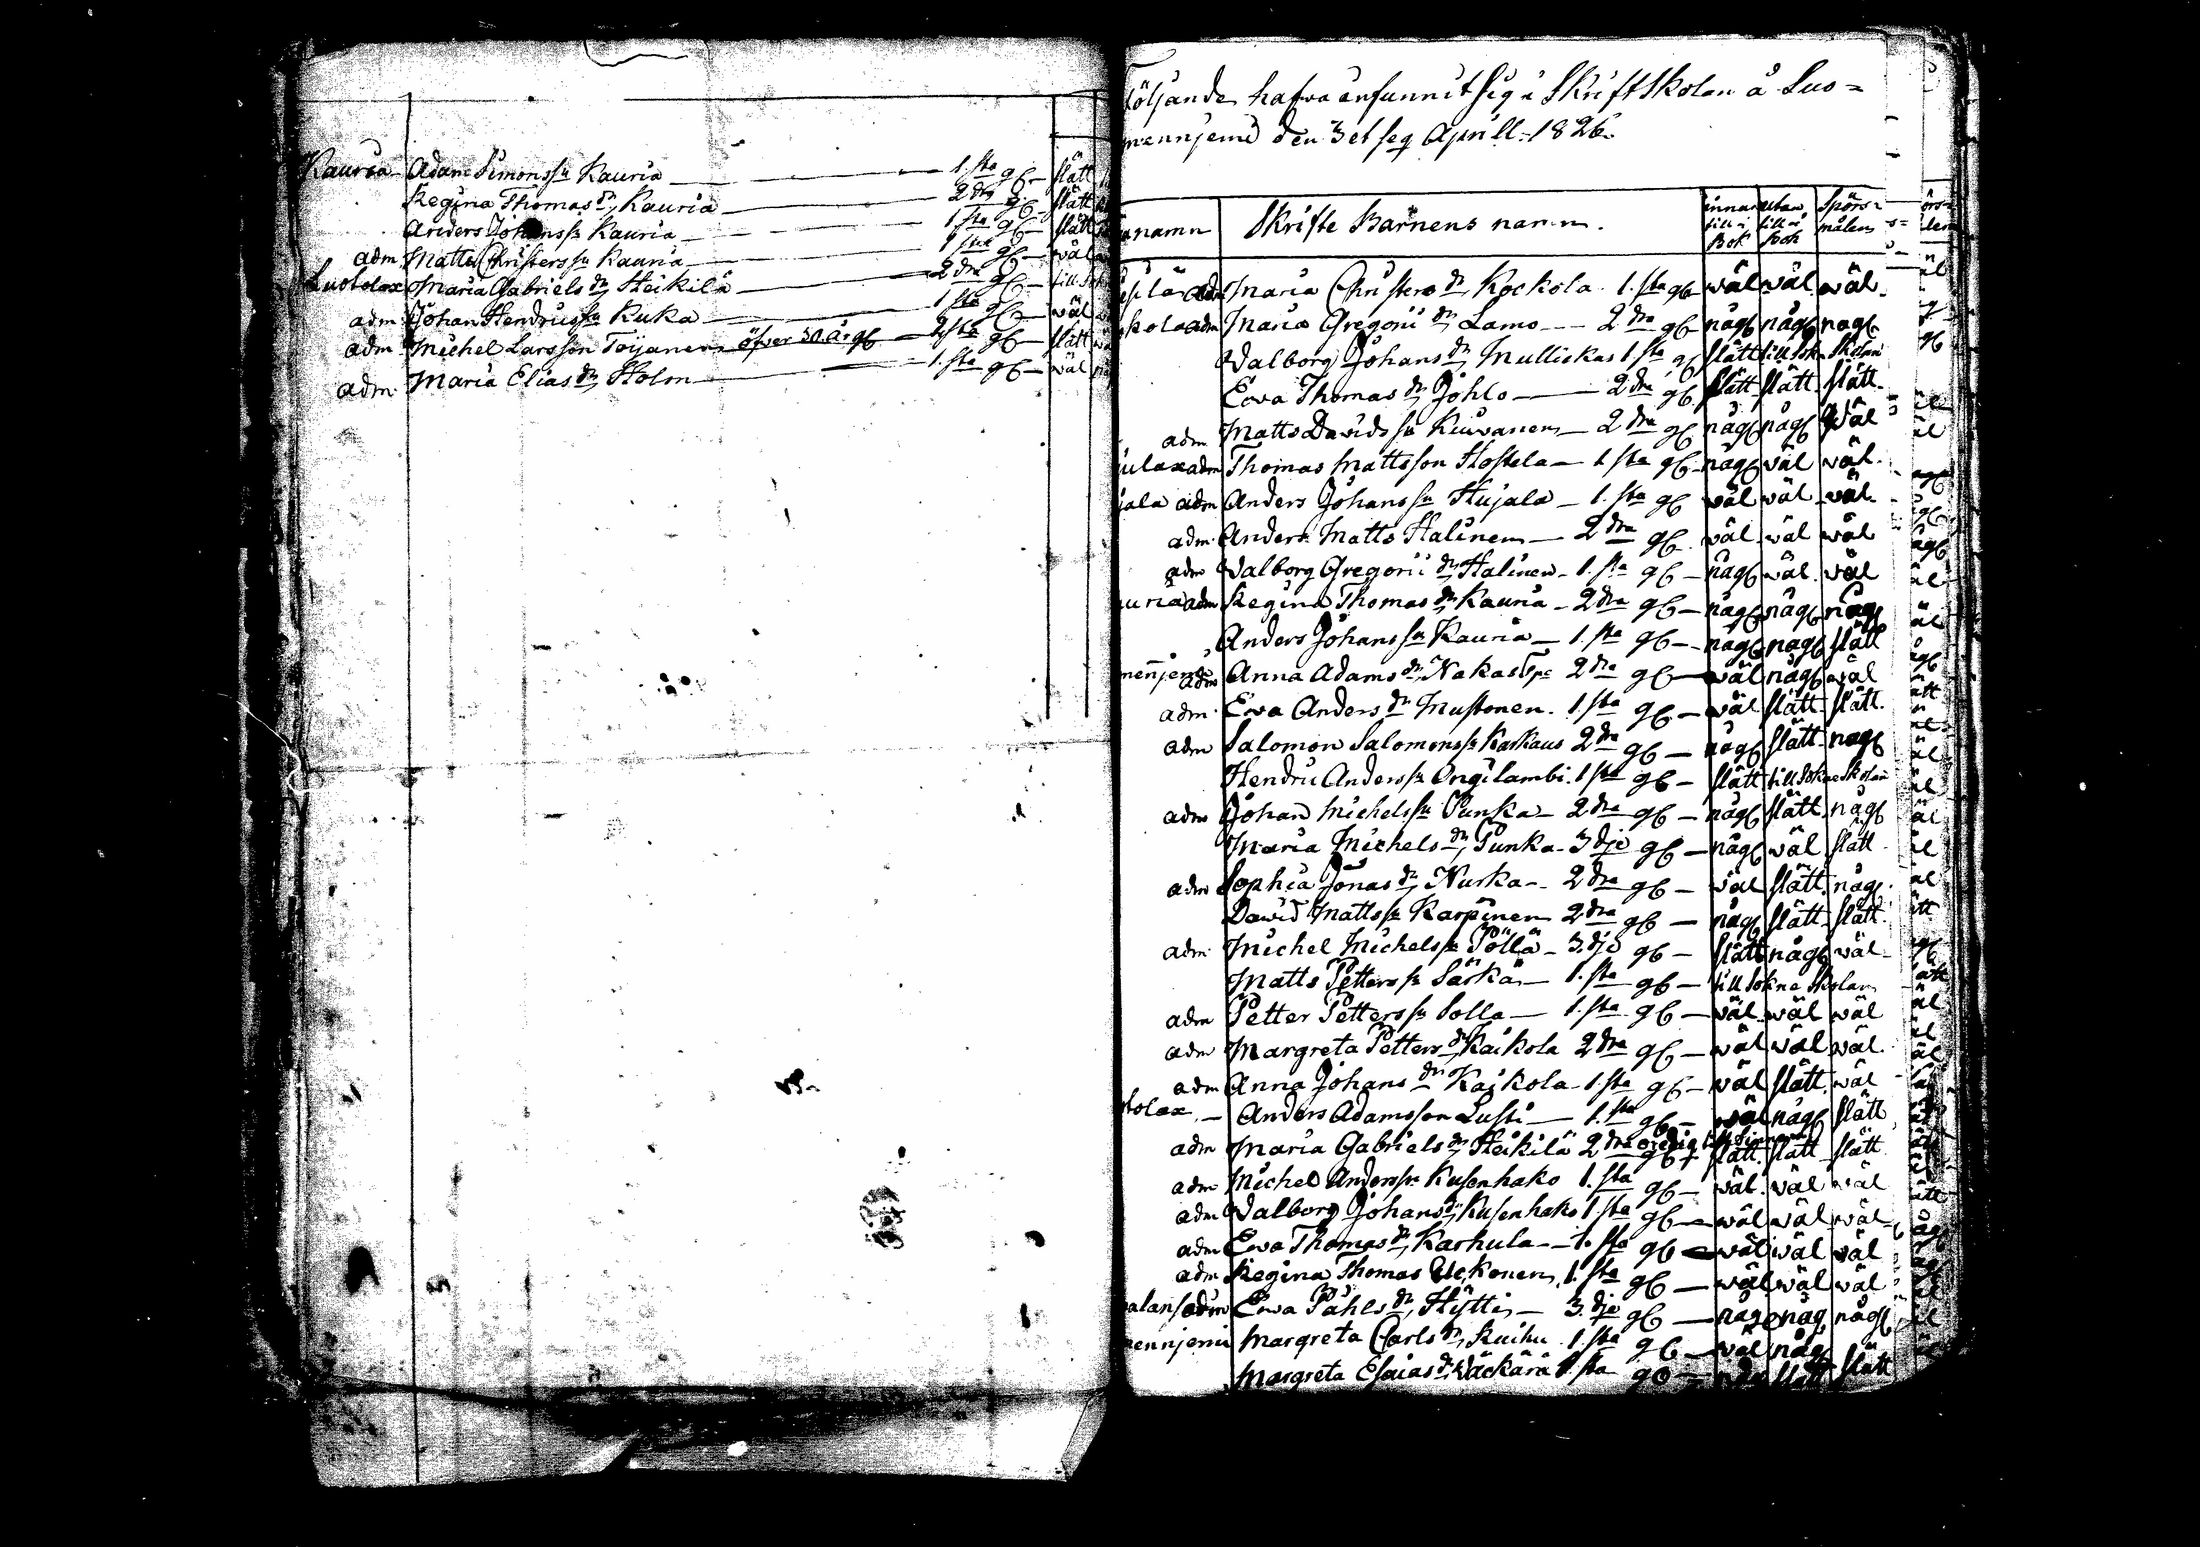 Kauria Adam Simonss:n Kauria — 1.sta gC — slätt
Regina Thomas d:r Kauria — 2dra gC — slätt
Anders Johanss:n Kauria — 1sta gC — slätt
adm Matts Christerss:n Kauria — 1sta gC — wäl
Luotolax Maria Gabriels d:r Heikilä — 2dra gC — till
adm Johan Hendricss:n Kuka — 1sta gC — wäl
adm Michel Larsson Toijanen öfver 30 år gC — 1sta gC — slätt
adm Maria Elias d:r Holm — 1.sta gC — wäl
Följande hafva infunnit sig i Skriftskolan å Suo=
mennjemi den 3 et seq April 1826.
namn Skrifte Barnens namn. innan till i Bok utan till i bok Spörs= målen
adm Maria Christers d:r Kockola 1.sta gC wäl wäl wäl
kola adm Maria Gregorii d:r Lamo — 2dra gC någC någC någC
Walborg Johans d:r Mulliskas 1sta gC slätt till Sokn Skolan
Ewa Thomas d:r Johlo — 2dra gC slätt slätt slätt
adm Matts Davids s:n Kuivanen — 2dra gC någC någC Wäl
ulax adm Thomas Mattsson Hostela — 1sta gC någC wäl wäl
jala adm Anders Johanss:n Hujala — 1.sta gC wäl wäl wäl
adm Anders Matts Halinen — 2dra gC wäl wäl wäl
adm Walborg Gregorii d:r Halinen — 1.sta gC — någC wäl wäl
uria adm Regina Thomas d:r Kauria — 2dra gC — någC någC någC
Anders Johanss:n Kauria — 1.sta gC — någC någC slätt
mennjemi adm Anna Adams d:r Nakas 2dra gC — wäl någC wäl
adm Ewa Anders d:r Mustonen. 1.sta gC — wäl slätt slätt
adm Salomon Salomonss:n Karkaus 2dra gC — någC slätt någC
Hendric Anderss:n Ongilambi. 1sta gC — slätt till Sokne Skolan
adm Johan Michelss:n Punka — 2dra gC — någC slätt någC
Maria Michels d:r Punka — 3dje gC — någC wäl slätt
adm Sophia Jonas d:r Nurka — 2dra gC — wäl slätt någC
David Mattss:n Karpinen 2dra gC — någC slätt slätt
adm Michel Michelss:n Pöllä — 3.dje gC — slätt någC wäl
Matts Petterss:n Särkä — 1.sta gC — till Sokne Skolan
adm Petter Petterss:n Solla — 1.sta gC — wäl wäl wäl
adm Margreta Petters d:r Kaikola 2dra gC — wäl wäl wäl
adm Anna Johans d:r Kaikola — 1.sta gC — wäl slätt wäl
tolax — Anders Adamsson Lusti — 1.sta gC — wäl någC slätt
adm Maria Gabriels d:r Heikilä 2dra gC slätt slätt slätt
adm Michel Anderss:n Kusenhako 1.sta gC — wäl wäl wäl
adm Walborg Johans d:r Kusenhako 1sta gC — wäl wäl wäl
adm Ewa Thomas d:r Karhula — 1.sta gC — wäl wäl wäl
adm Regina Thomas Ukkonen, 1.sta gC — wäl wäl wäl
adm Ewa Påhls d:r Hytti — 3.dje gC — någC någ någC
mennjemi Margreta Carls d:r Kuihu 1.sta gC — wäl någC
Margreta Esaias d:r Wäckärä 1.sta gC — slätt slätt